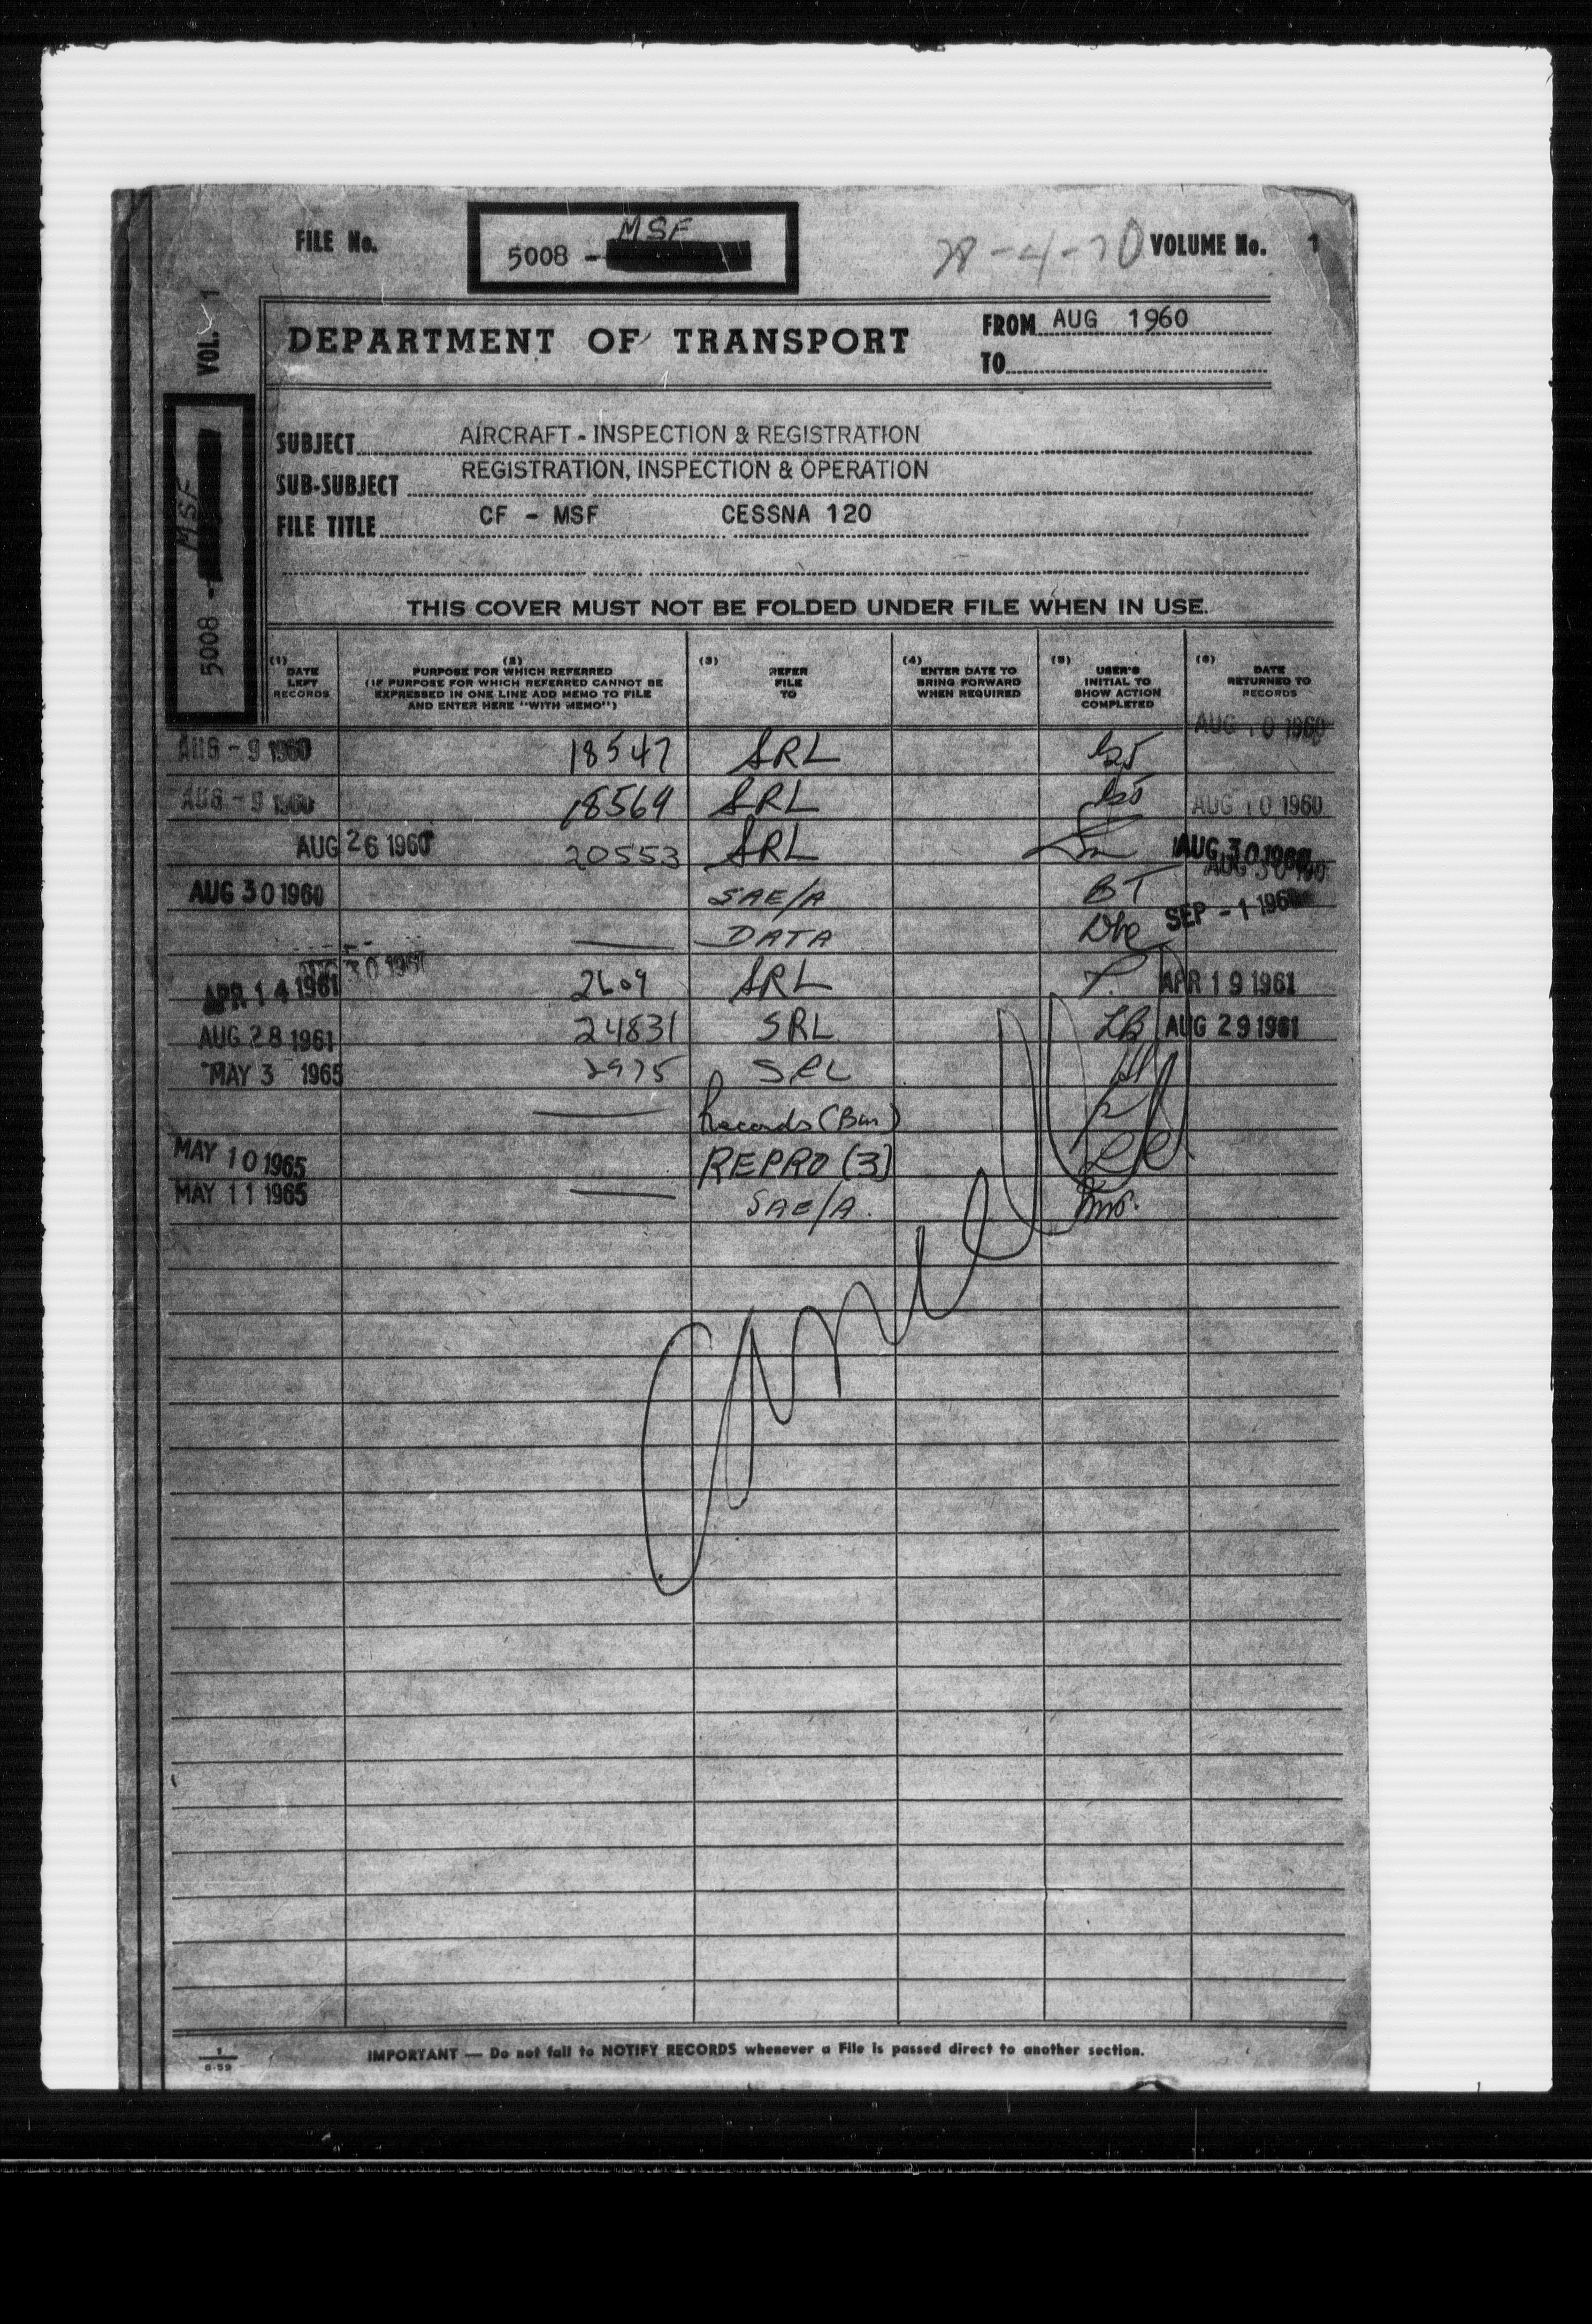 FILE No. 5008 - MSF 28-4-70 VOLUME No. 1
VOL. 1
5008 - MSF
DEPARTMENT OF TRANSPORT
FROM AUG 1960
TO
SUBJECT AIRCRAFT - INSPECTION & REGISTRATION
SUB-SUBJECT REGISTRATION, INSPECTION & OPERATION
FILE TITLE CF - MSF CESSNA 120
THIS COVER MUST NOT BE FOLDED UNDER FILE WHEN IN USE.
(1) DATE LEFT RECORDS
(2) PURPOSE FOR WHICH REFERRED (IF PURPOSE FOR WHICH REFERRED CANNOT BE EXPRESSED IN ONE LINE ADD MEMO TO FILE AND ENTER HERE "WITH MEMO")
(3) REFER FILE TO
(4) ENTER DATE TO BRING FORWARD WHEN REQUIRED
(5) USER'S INITIAL TO SHOW ACTION COMPLETED
(6) DATE RETURNED TO RECORDS
AUG - 9 1960 18547 SRL AUG 10 1960
AUG - 9 1960 18569 SRL AUG 10 1960
AUG 26 1960 20553 SRL AUG 30 1960
AUG 30 1960 SAE/A BT AUG 30 1960
DATA SEP - 1 1960
APR 14 1961 2609 SRL APR 19 1961
AUG 28 1961 24831 SRL LB AUG 29 1961
MAY 3 1965 2975 SRL
Records
MAY 10 1965 REPRO (3)
MAY 11 1965 SAE/A.
1
6-59
IMPORTANT — Do not fail to NOTIFY RECORDS whenever a File is passed direct to another section.